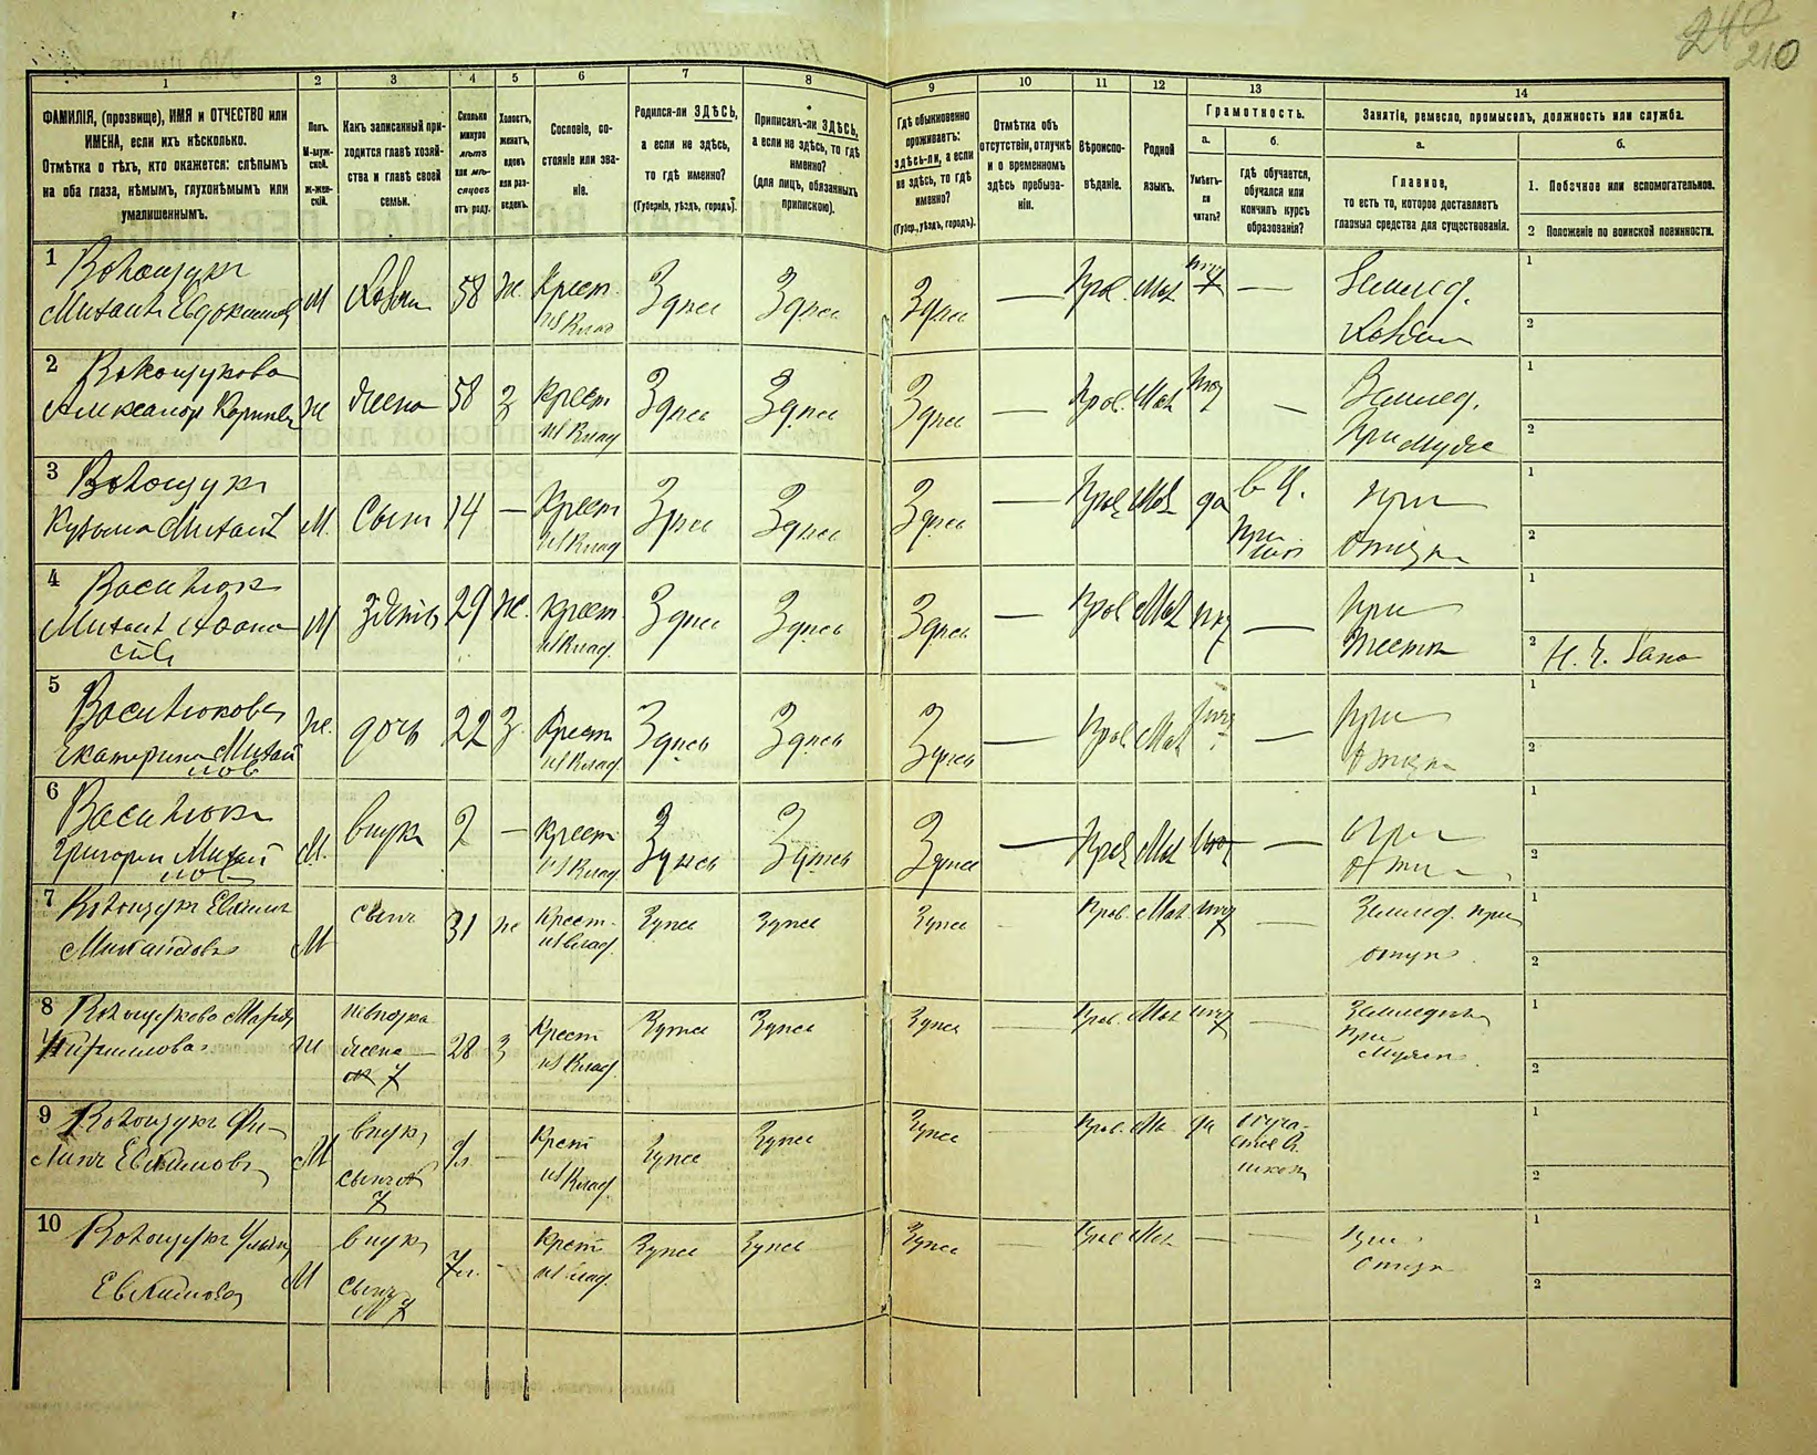 240
210
1
2
3
4
5
6
7
8
9
10
11
12
13
14
ФАМИЛІЯ, (прозвище), ИМЯ и ОТЧЕСТВО или
ИМЕНА, если ихъ нѣсколько.
Отмѣтка о тѣхъ, кто окажется: слѣпымъ
на оба глаза, нѣмымъ, глухонѣмымъ или
умалишеннымъ.
Полъ.
М-муж-
ской.
ж-жен-
скій.
Какъ записанный при-
ходится главѣ хозяй-
ства и главѣ своей
семьи.
Сколько
минуло
лѣтъ
или мѣ-
сяцевъ
отъ роду.
Холостъ,
женатъ,
вдовъ
или раз-
веденъ.
Сословіе, со-
стояніе или зва-
ніе.
Родился-ли ЗДѢСЬ,
а если не здѣсь,
то гдѣ именно?
(Губернія, уѣздъ, городъ).
Приписанъ-ли ЗДѢСЬ,
а если не здѣсь, то гдѣ
именно?
(для лицъ, обязанныхъ
припискою).
Гдѣ обыкновенно
проживаетъ:
здѣсь-ли, а если
не здѣсь, то гдѣ
именно?
(Губер., уѣздъ, городъ).
Отмѣтка объ
отсутствіи, отлучкѣ
и о временномъ
здѣсь пребыва-
ніи.
Вѣроиспо-
вѣданіе.
Родной
языкъ.
Грамотность.
а.
Умѣетъ-
ли
читать?
б.
гдѣ обучается,
обучался или
кончилъ курсъ
образованія?
Занятіе, ремесло, промыселъ, должность или служба.
а.
Главное,
то есть то, которое доставляетъ
главныя средства для существованія.
б.
1. Побочное или вспомогательное.
2 Положеніе по воинской повинности.
1 Волощукъ
Михаилъ Евдокимов М Хозяин 58 Ж. Крест. Здѣсь Здѣсь Здѣсь — Прав. Мал нѣт — Землед.
из влад Хозяин
2 Волощукова
Александр Корнил Ж жена 58 З Крест Здѣсь Здѣсь Здѣсь — Прав. Мал нѣт — Землед.
из влад При мужѣ
3 Волощукъ
Кузьма Михаил М. Сынъ 14 — Крест Здѣсь Здѣсь Здѣсь — Прав Мал да в Ц. при
из влад При шк отцѣ
4 Василюкъ
Михаил Афана М Зять 29 Ж. Крест. Здѣсь Здѣсь Здѣсь — Прав Мал нѣт — При
сіев из влад. тестѣ
5 Василюкова
Екатерина Михай Ж. дочь 22 З. Крест Здѣсь Здѣсь Здѣсь — Прав. Мал нѣт — При
лов из влад. отцѣ
6 Василюкъ
Григорій Михай М. внукъ 2 — Крест Здѣсь Здѣсь Здѣсь — Прав Мал нѣт — При
лов из влад. отцѣ
7 Волощукъ
Михаиловъ М сынъ 31 Ж Крест. Здѣсь Здѣсь Здѣсь Прав. Мал нѣт — Землед. при
из влад. отцѣ
8 Волощукова Марія Ж невѣстка 28 З Крест Здѣсь Здѣсь Здѣсь — Прав. Мал нѣт — Земледѣл
жена 7 из влад. При
мужѣ
9 Волощукъ Фи-
липъ М внукъ 9л — Крест Здѣсь Здѣсь Здѣсь — Прав. Ма да обуча-
сынъ № 7 из влад. ется в
школѣ
10 Волощукъ
М внукъ 7л. — Крест Здѣсь Здѣсь Здѣсь — Прав Мал — — При
сынъ № 7 из влад. отцѣ